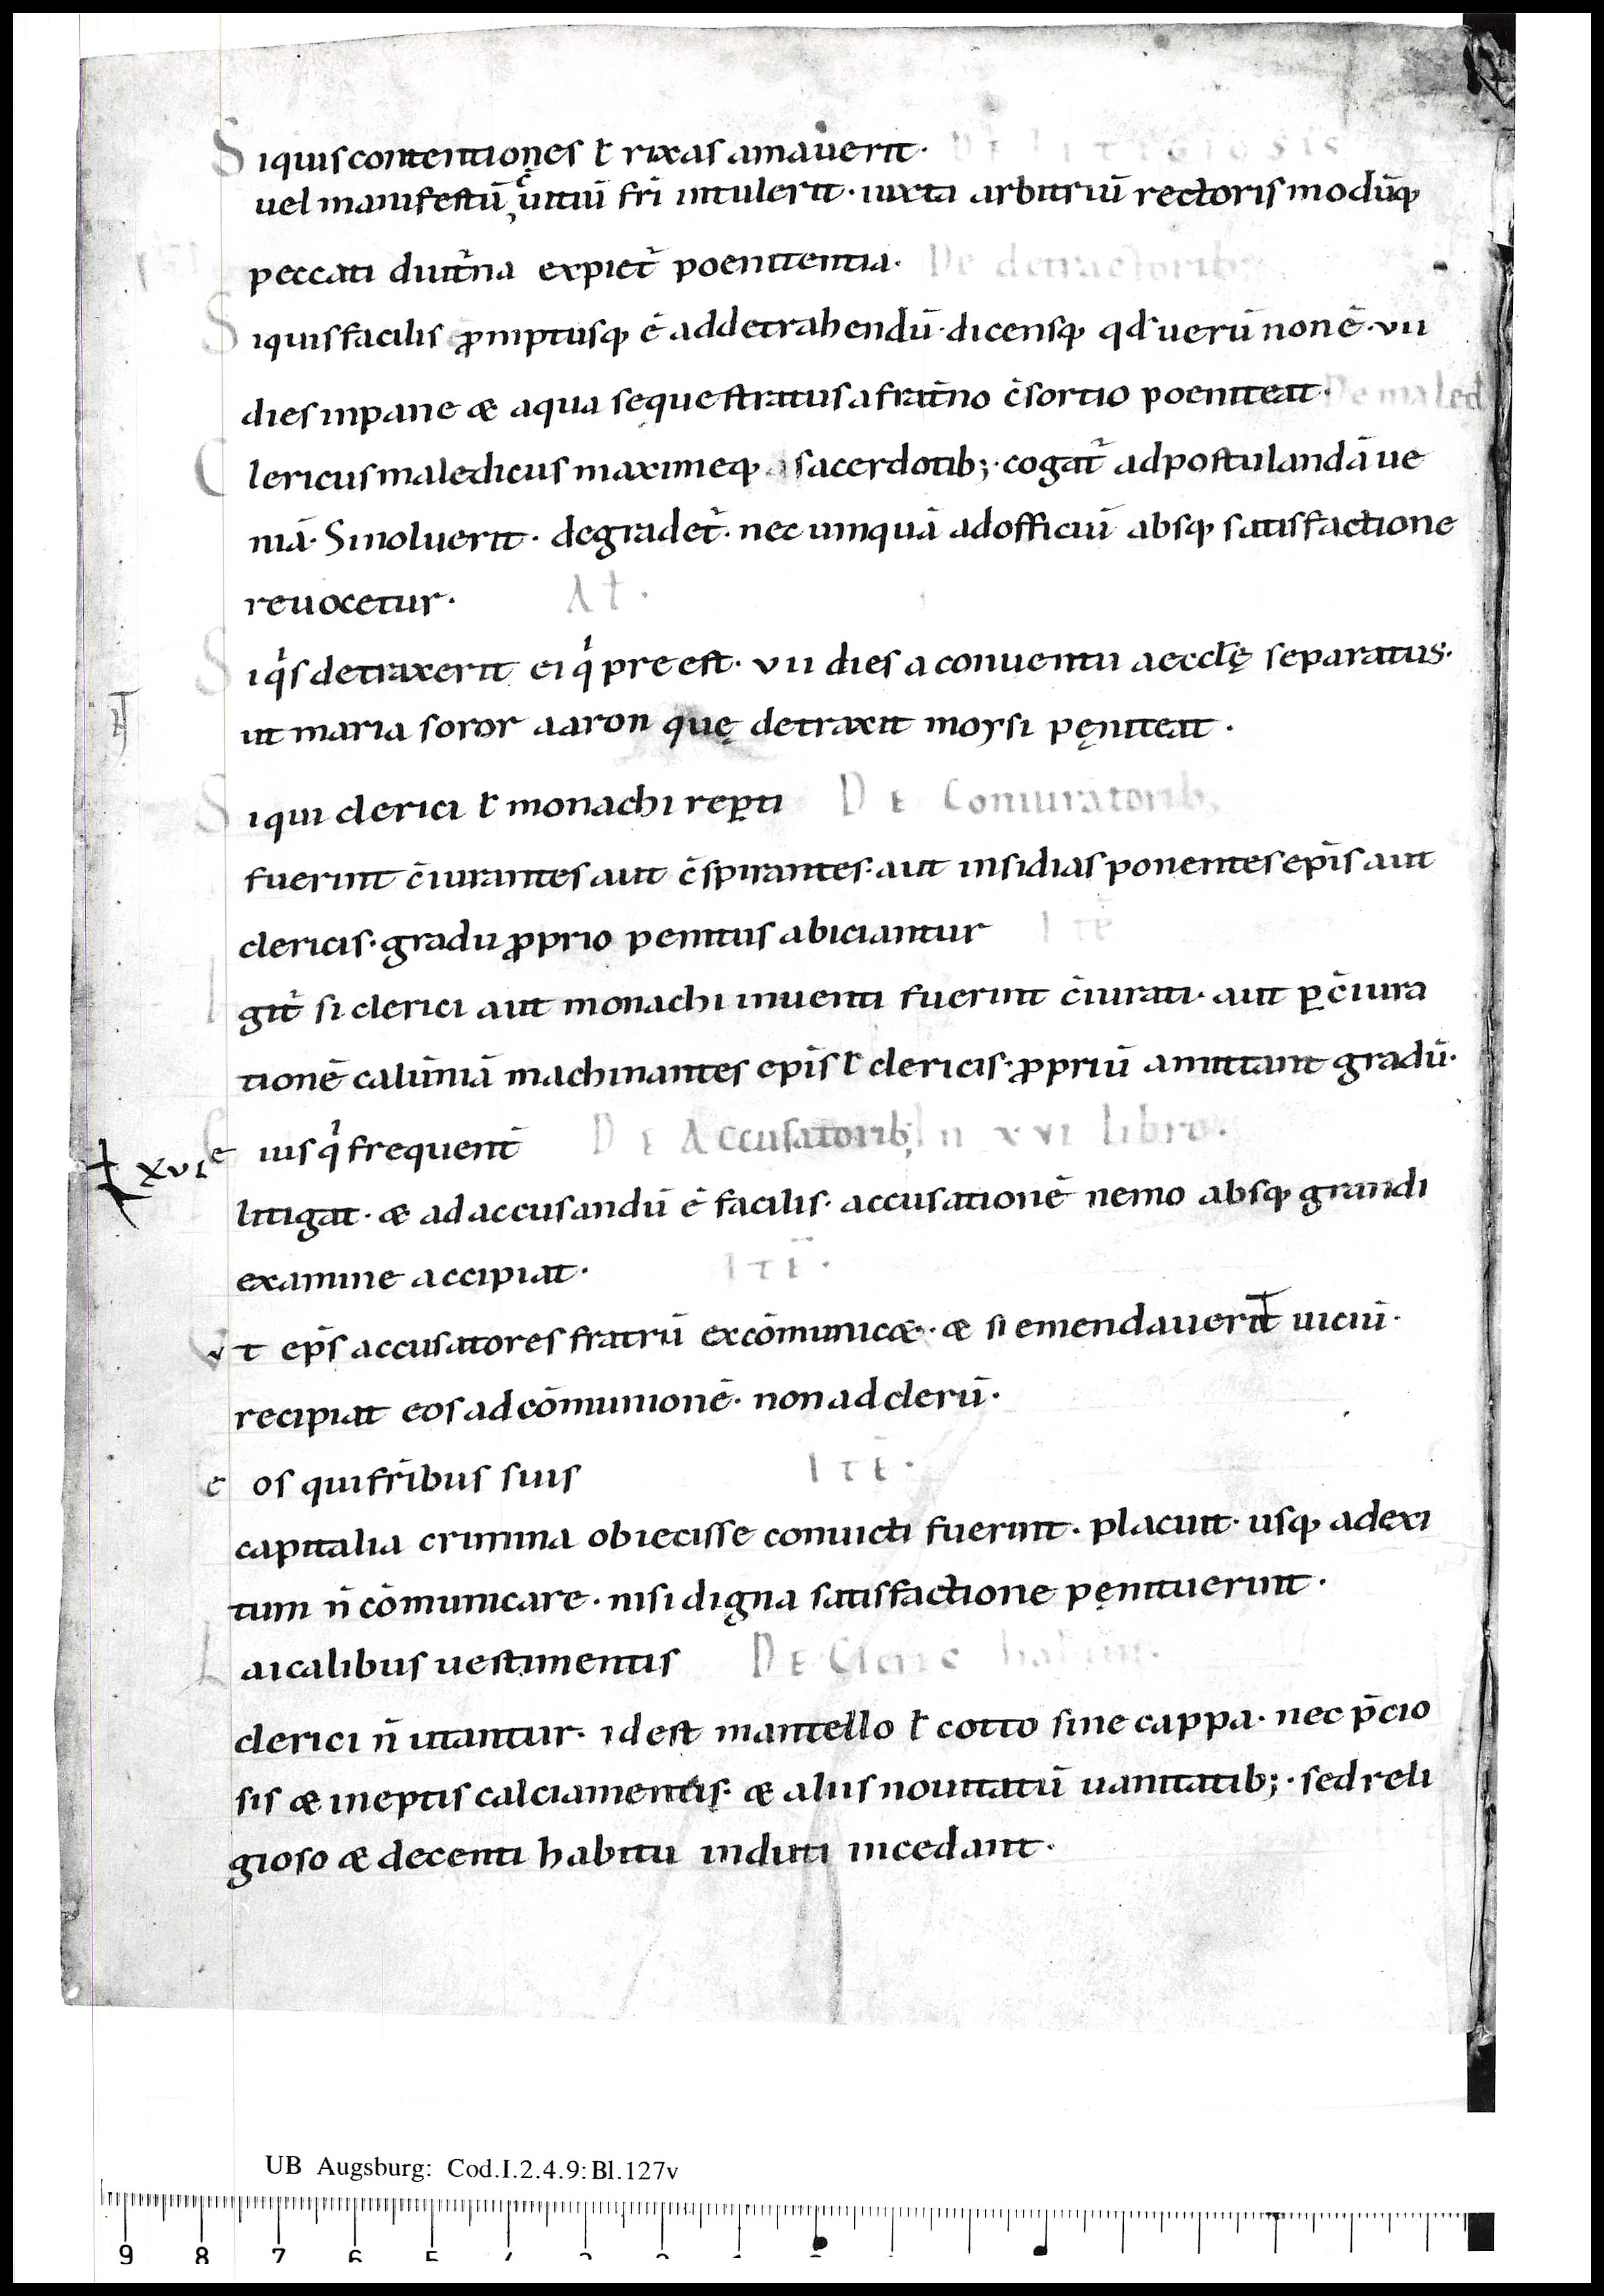 Siquis contentiones ł rixas amauerit· DE LITIGIOSIS
uel manifestū c̄uitiū fr̄i intulerit· iuxta arbitriū rectoris modūq;
peccati diut̄na expiet᷑ poenitentia· De detractorib;
Siquis facilis p̄mptusq; ē ad detrahendū· dicensq; qđ uerū non ē· vii
dies in pane & aqua sequestratus a frat̄no c̄sortio poeniteat· De maled
Clericus maledicus maximeq; sacerdotib;· cogat᷑ ad postulandā ue
niā· Si noluerit· degradet᷑· nec umquā ad officiū absq; satisfactione
reuocetur· At·
Siqͥs detraxerit ei qͥ preest· vii dies a conuentu aecclę separatus·
ut maria soror aaron quę detraxit moysi pęniteat·
Siqui clerici ł monachi rep̱ti DE Coniuratorib;
fuerint c̄iurantes aut c̄spirantes· aut insidias ponentes ep̄is aut
clericis· gradu ꝓprio penitus abiciantur Itē
Igit᷑ si clerici aut monachi inuenti fuerint c̄iurati· aut ꝑ c̄iura
tionē calūniā machinantes ep̄is ł clericis· ꝓpriū amittant gradū·
xvi e ius qͥ frequent̄ DE Accusatorib; In xvi libro·
litigat· & ad accusandū ē facilis· accusationē nemo absq; grandi
examine accipiat· ITĒ·
Vt ep̄s accusatores fratrū excōmunicæ· & si emendauerit uiciū·
recipiat eos ad cōmunionē· non ad clerū·
eos qui fr̄ibus suis ITĒ·
capitalia crimina obiecisse conuicti fuerint· placuit· usq; ad exi
tum n̄ cōmunicare· nisi digna satisfactione pęnituerint·
Laicalibus uestimentis DE Cleric habitu·
clerici n̄ utantur· id est mantello ł cotto sine cappa· nec p̄cio
sis & ineptis calciamentis· & aliis nouitatū uanitatib;· sed reli
gioso & decenti habitu induti incedant·
UB Augsburg: Cod.I.2.4.9:Bl.127v
9 8 7 6 5